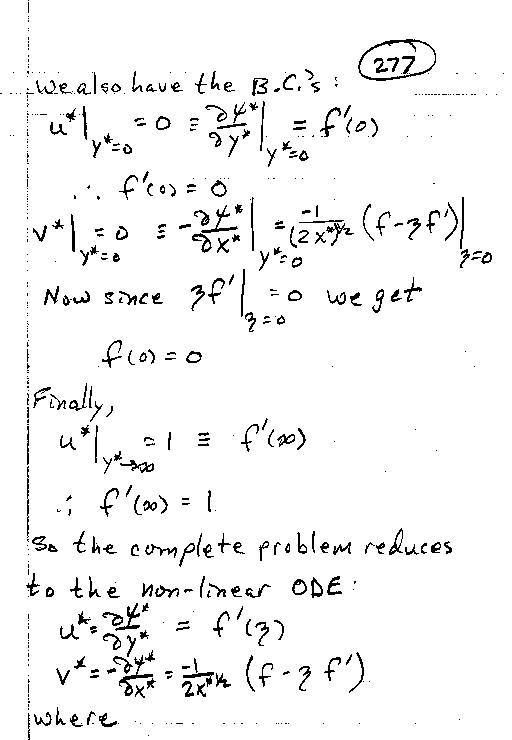 277
We also have the B.C.'s:
u*|_{y*=0} = 0 ≡ ∂ψ*/∂y*|_{y*=0} = f'(0)
∴ f'(0) = 0
v*|_{y*=0} = 0 ≡ -∂ψ*/∂x*|_{y*=0} = -1/(2x*)^{1/2} (f-ʒf')|_{ʒ=0}
Now since ʒf'|_{ʒ=0} = 0 we get
f(0) = 0
Finally,
u*|_{y*→∞} = 1 ≡ f'(∞)
∴ f'(∞) = 1
So the complete problem reduces
to the non-linear ODE:
u* = ∂ψ*/∂y* = f'(ʒ)
v* = -∂ψ*/∂x* = -1/2x*^{1/2} (f-ʒf')
where